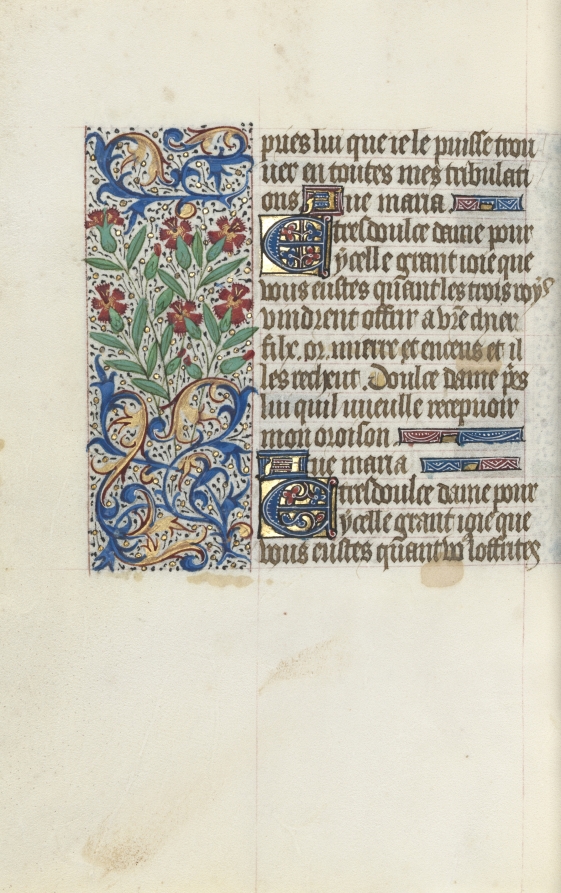 pries lui que ie le puisse trou
uer en toutes mes tribulati
ons Aue maria
E tresdoulce dame pour
ycelle grant ioie que
vous eustes quant les trois roys
vindrent offrir a vr̃e chier
filz or mierre et encens et il
les rechut. Doulce dame p̃es
lui quil vueille recepuoir
mon oroison
Aue maria
E tresdoulce dame pour
ycelle grant ioie que
vous eustes quant vo9 loffrites